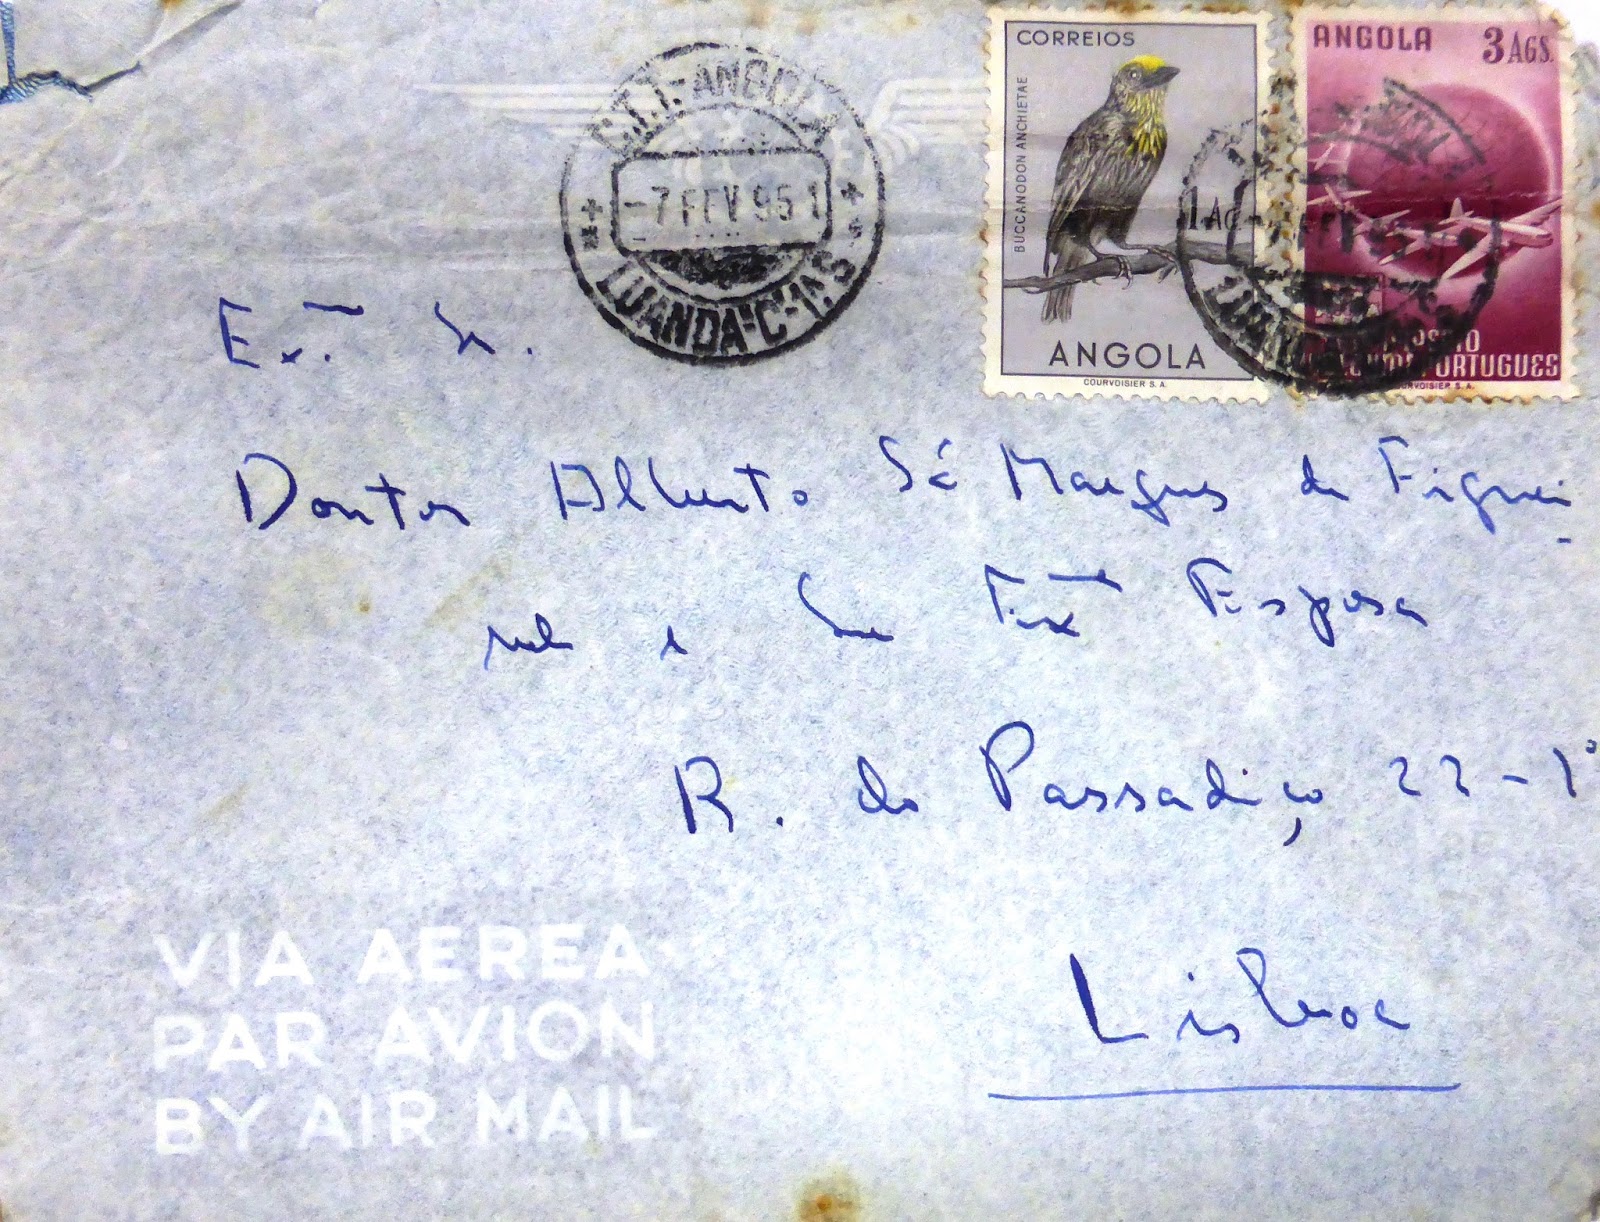 C.T.T.-ANGOLA
-7 FEV 951
LUANDA-C-1AS
CORREIOS
BUCCANODON ANCHIETAE
1 AG.
ANGOLA
COURVOISIER S.A.
ANGOLA 3 AGS.
IMPÉRIO COLONIAL PORTUGUES
COURVOISIER S.A.
Ex.mo Sr.
Doutor Alberto Sá Marques de Figuei-
redo e Sua Exma Esposa
R. do Passadiço 22-1º
Lisboa
VIA AEREA
PAR AVION
BY AIR MAIL